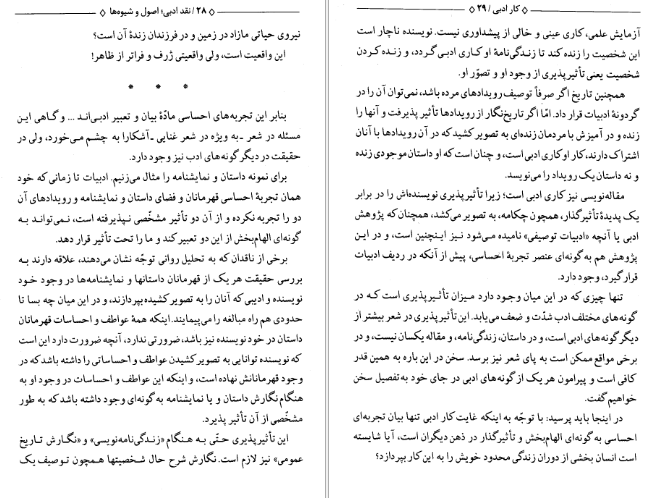 ۲۸ / نقد ادبی؛ اصول و شیوه‌ها
نیروی حیاتی مازاد در زمین و در فرزندان زندۀ آن است؟
این واقعیت است، ولی واقعیتی ژرف و فراتر از ظاهر!
* * *
بنابر این تجربه‌های احساسی مادّۀ بیان و تعبیر ادبی‌اند ... و گاهی این
مسئله در شعر ـ به ویژه در شعر غنایی ـ آشکارا به چشم می‌خورد، ولی در
حقیقت در دیگر گونه‌های ادب نیز وجود دارد.
برای نمونه داستان و نمایشنامه را مثال می‌زنیم. ادبیات تا زمانی که خود
همان تجربۀ احساسی قهرمانان و فضای داستان و نمایشنامه و رویدادهای آن
دو را تجربه نکرده و از آن دو تأثیر مشخّصی نپذیرفته است، نمی‌تواند به
گونه‌ای الهام‌بخش از این دو تعبیر کند و ما را تحت تأثیر قرار دهد.
برخی از ناقدان که به تحلیل روانی توجّه نشان می‌دهند، علاقه دارند به
بررسی حقیقت هر یک از قهرمانان داستانها و نمایشنامه‌ها در وجود خود
نویسنده و ادیبی که آنان را به تصویر کشیده بپردازند، و در این میان چه بسا تا
حدودی هم راه مبالغه را می‌پیمایند. اینکه همۀ عواطف و احساسات قهرمانان
داستان در خود نویسنده نیز باشد، ضرورتی ندارد، آنچه ضرورت دارد این است
که نویسنده توانایی به تصویر کشیدن عواطف و احساساتی را داشته باشد که در
وجود قهرمانانش نهاده است، و اینکه این عواطف و احساسات در وجود او به
هنگام نگارش داستان و یا نمایشنامه به گونه‌ای وجود داشته باشد که به طور
مشخّصی از آن تأثیر پذیرد.
این تأثیرپذیری حتّی به هنگام «زندگی‌نامه‌نویسی» و «نگارش تاریخ
عمومی» نیز لازم است. نگارش شرح حال شخصیتها همچون توصیف یک
کار ادبی / ۲۹
آزمایش علمی، کاری عینی و خالی از پیشداوری نیست. نویسنده ناچار است
این شخصیت را زنده کند تا زندگی‌نامۀ او کاری ادبی گردد، و زنده کردن
شخصیت یعنی تأثیرپذیری از وجود او و تصوّر او.
همچنین تاریخ اگر صرفاً توصیف رویدادهای مرده باشد، نمی‌توان آن را در
گردونۀ ادبیات قرار داد. امّا اگر تاریخ‌نگار از رویدادها تأثیر پذیرفت و آنها را
زنده و در آمیزش با مردمان زنده‌ای به تصویر کشید که در آن رویدادها با آنان
اشتراک دارند، کار او کاری ادبی است، و چنان است که او داستان موجودی زنده
و نه داستان یک رویداد را می‌نویسد.
مقاله‌نویسی نیز کاری ادبی است؛ زیرا تأثیرپذیری نویسنده‌اش را در برابر
یک پدیدۀ تأثیرگذار، همچون چکامه، به تصویر می‌کشد، همچنان که پژوهش
ادبی یا آنچه «ادبیات توصیفی» نامیده می‌شود نیز اینچنین است، و در این
پژوهش هم به گونه‌ای عنصر تجربۀ احساسی، پیش از آنکه در ردیف ادبیات
قرار گیرد، وجود دارد.
تنها چیزی که در این میان وجود دارد میزان تأثیرپذیری است که در
گونه‌های مختلف ادب شدّت و ضعف می‌یابد. این تأثیرپذیری در شعر بیشتر از
دیگر گونه‌های ادبی است، و در داستان، زندگی‌نامه، و مقاله یکسان نیست، و در
برخی مواقع ممکن است به پای شعر نیز برسد. سخن در این باره به همین قدر
کافی است و پیرامون هر یک از گونه‌های ادبی در جای خود به تفصیل سخن
خواهیم گفت.
در اینجا باید پرسید: با توجّه به اینکه غایت کار ادبی تنها بیان تجربه‌ای
احساسی به گونه‌ای الهام‌بخش و تأثیرگذار در ذهن دیگران است، آیا شایسته
است انسان بخشی از دوران زندگی محدود خویش را به این کار بپردازد؟